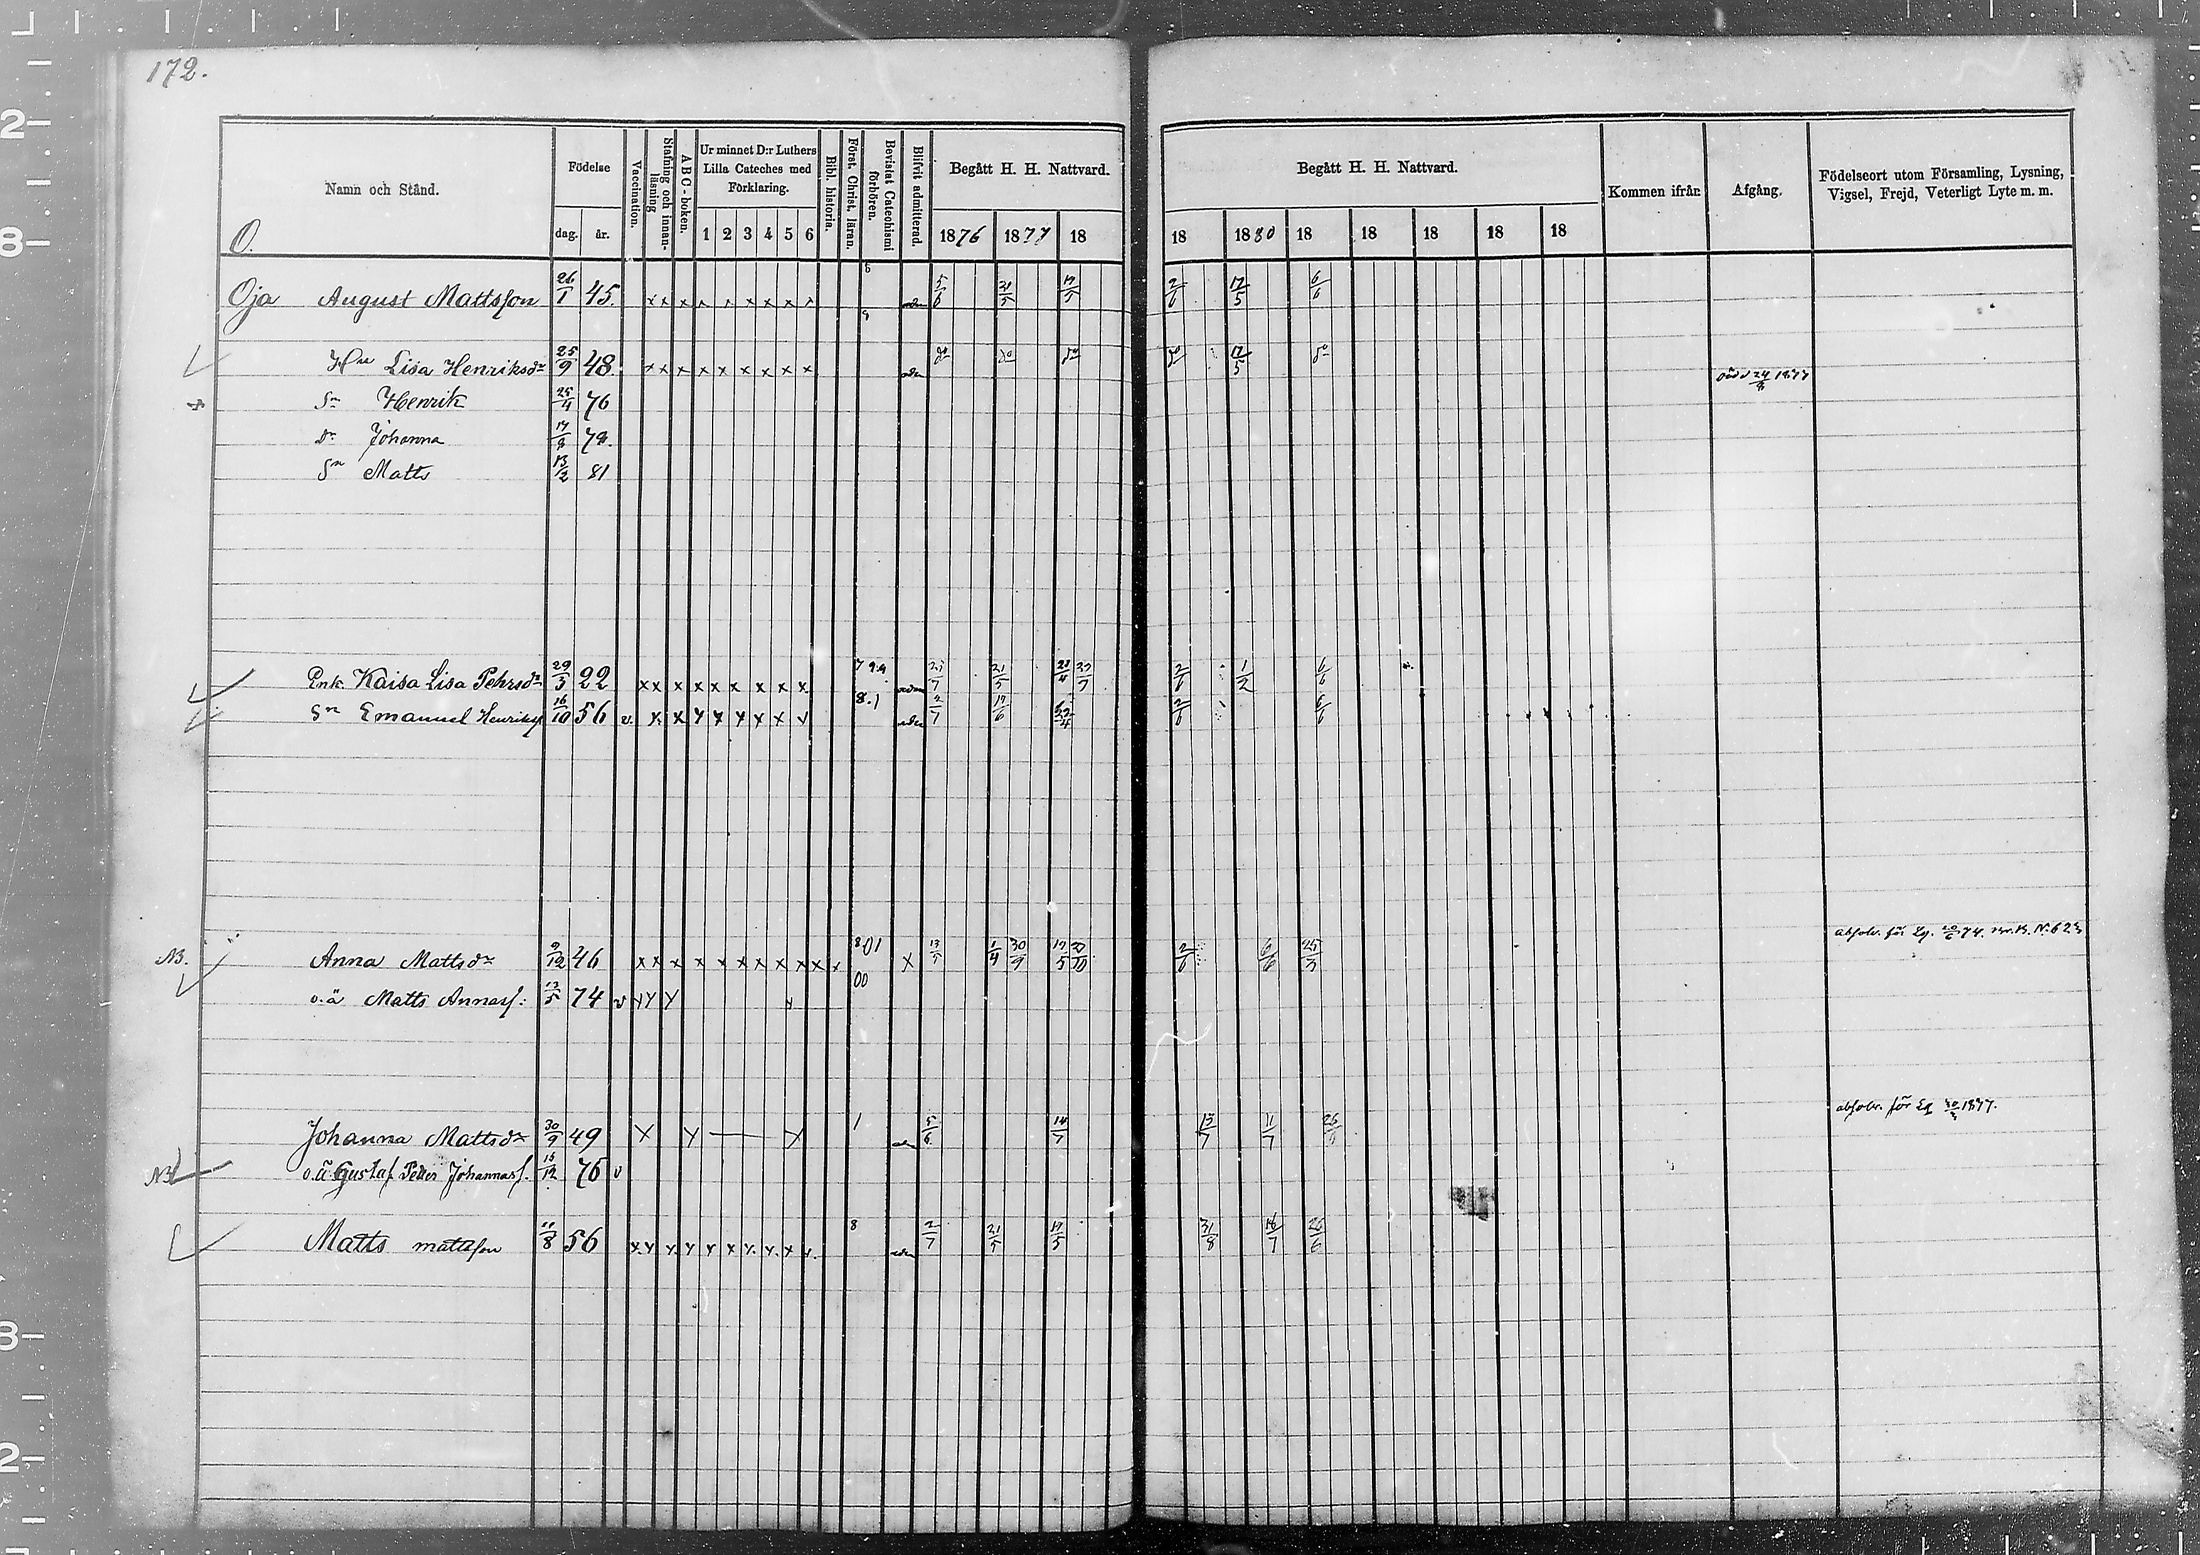 172.
Namn och Stånd.
Födelse
dag. år.
Vaccination.
Stafning och innanläsning
ABC-boken.
Ur minnet D:r Luthers Lilla Cateches med Förklaring.
1 2 3 4 5 6
Bibl. historia.
Först. Christ. läran.
Bevistat Catechismi förhören.
Blifvit admitterad.
Begått H. H. Nattvard.
1876 1877 18
Begått H. H. Nattvard.
18 1880 18 18 18 18 18
Kommen ifrån
Afgång.
Födelseort utom Församling, Lysning, Vigsel, Frejd, Veterligt Lyte m. m.
O.
Oja August Mattsson 26/1 45. x x x x x x x x x 5/6 21/5 17/5 2/6 17/5 6/6
Hu Lisa Henriksdr 25/9 48. x x x x x x x x x do do do do 17/5 do
Sn Henrik 25/4 76 död 24/ 1877
Dr Johanna 17/8 78.
Sn Matts 13/12 81
Enk. Kaisa Lisa Pehrsdr 29/3 22 x x x x x x x x x 21/5 27/7 2/6 1/2 6/6
Sn Emanuel Henriks 16/10 56 v. x x x x x x x x 8.1 2/7 17/6 2/6 6/6
NB. Anna Mattsdr 9/12 46 x x x x x x x x x x x 801 x 13/5 1/4 30/9 17/5 27/10 2/6 6/6 25/3 absolv. för Lg. 74. N:o 623
o.ä Matts Annass: 13/5 74 v y y y 00
Johanna Mattsdr 30/9 49 x y — y 1 5/6 14/7 13/7 11/7 26/6 absolv. för Lg 1877.
NB o.ä Gustaf Petter Johannass. 16/12 76 v
Matts mattsson 11/8 56 x y y y y x y y x v. 8 2/7 21/5 17/5 31/8 16/7 26/6